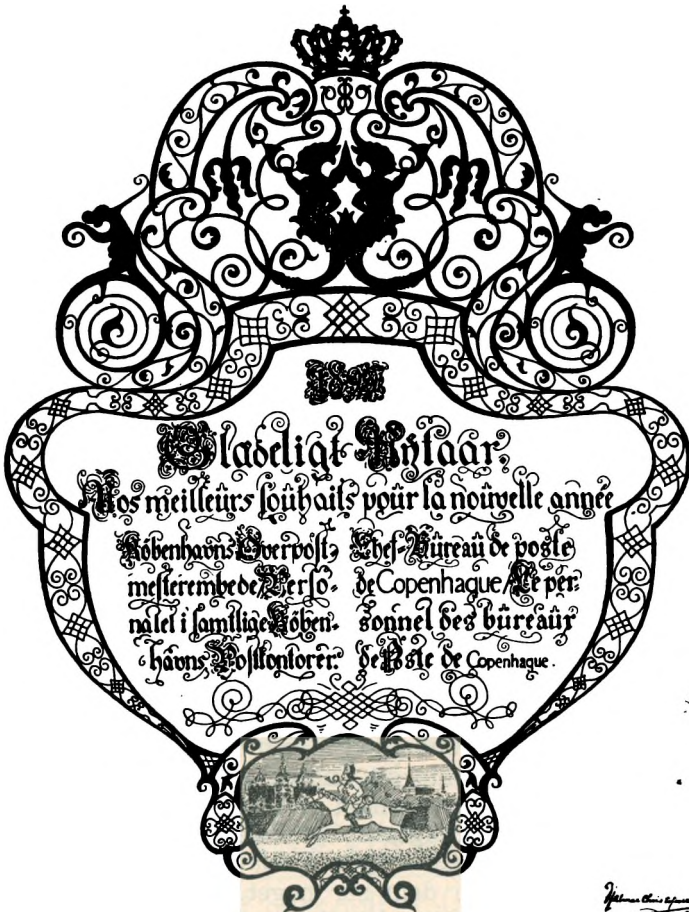 Glædeligt Nytaar.
Nos meilleurs souhaits pour la nouvelle année
Köbenhavns Overpost-
mesterembede/Perso-
nalet i samtlige Köben-
havns Postkontorer.
Chef-Bureau de poste
de Copenhague/Le per-
sonnel des bureaux
de Poste de Copenhague.